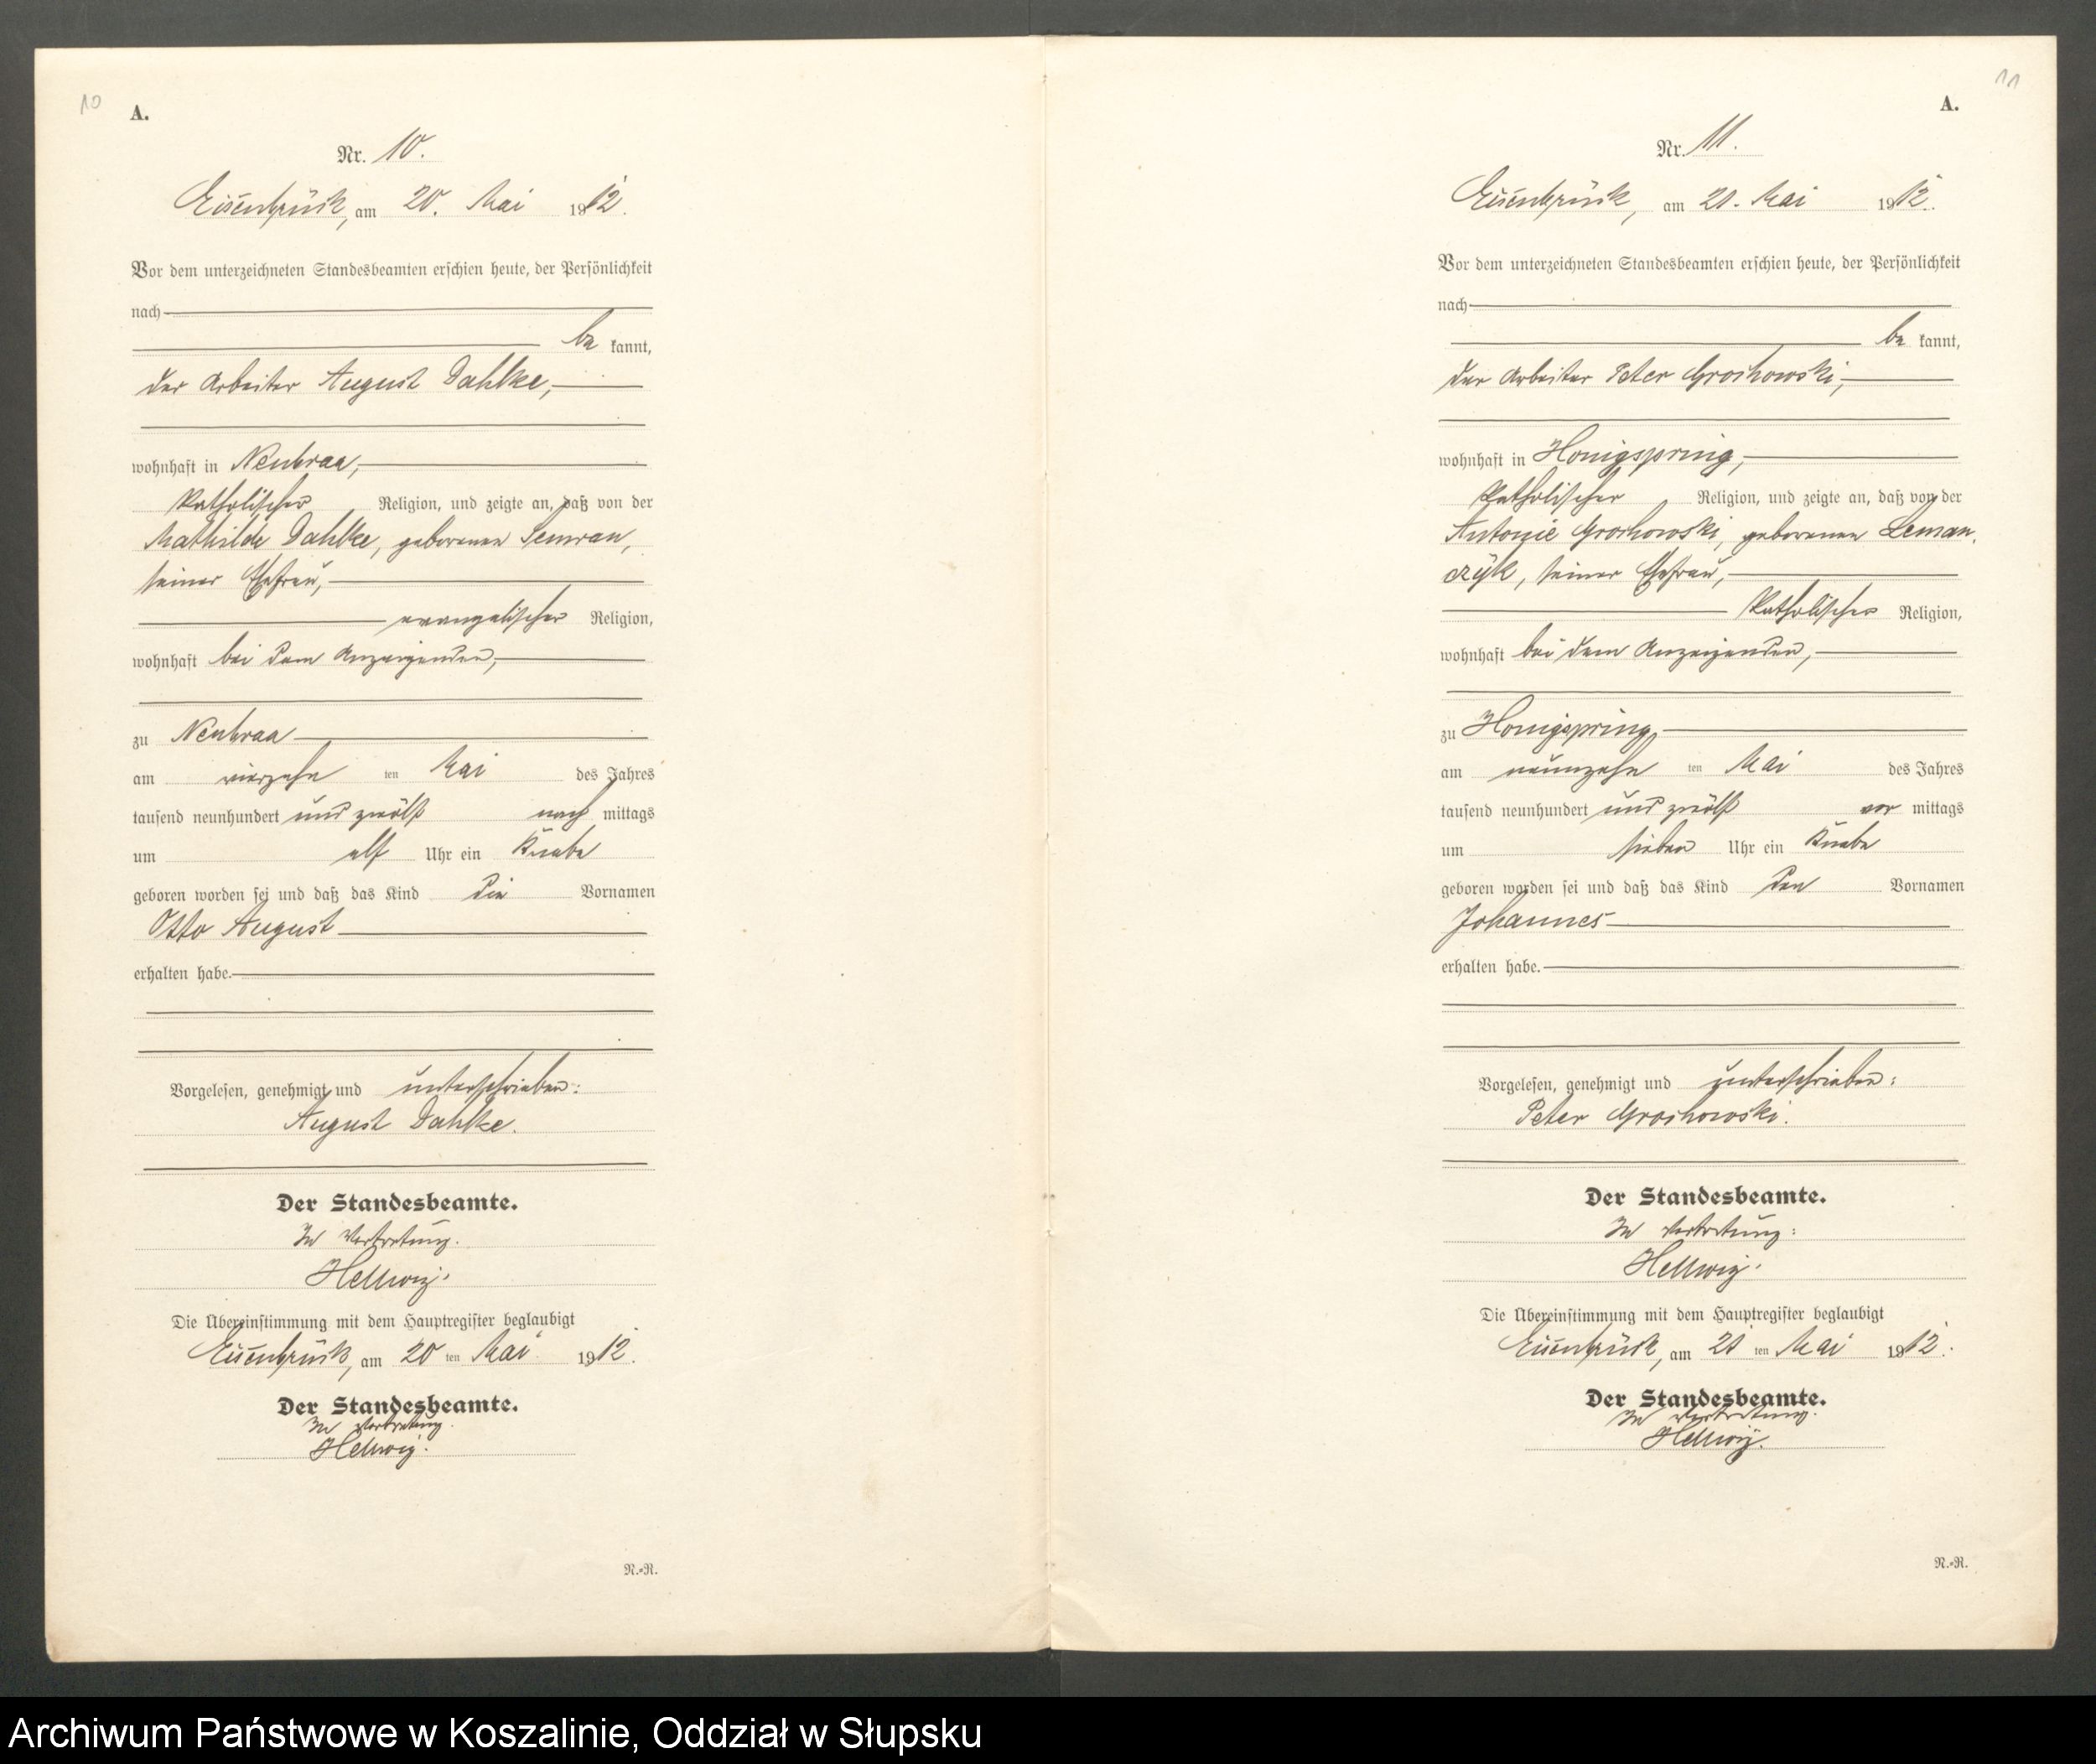 10
A.
Nr. 10.
Eisenbrück, am 20. Mai 1912.
Vor dem unterzeichneten Standesbeamten erschien heute, der Persönlichkeit
nach
be kannt,
der Arbeiter August Dahlke,
wohnhaft in Neubraa,
katholischer Religion, und zeigte an, daß von der
Mathilde Dahlke, geborenen Semrau,
seiner Ehefrau,
evangelischer Religion,
wohnhaft bei dem Anzeigenden,
zu Neubraa
am vierzehn ten Mai des Jahres
tausend neunhundert und zwölf nach mittags
um elf Uhr ein Knabe
geboren worden sei und daß das Kind die Vornamen
Otto August
erhalten habe.
Vorgelesen, genehmigt und unterschrieben:
August Dahlke.
Der Standesbeamte.
In Vertretung.
Hellwig.
Die Übereinstimmung mit dem Hauptregister beglaubigt
Eisenbrück, am 20 ten Mai 1912.
Der Standesbeamte.
In Vertretung.
Hellwig.
R.-R.
11
A.
Nr. 11.
Eisenbrück, am 21. Mai 1912.
Vor dem unterzeichneten Standesbeamten erschien heute, der Persönlichkeit
nach
be kannt,
der Arbeiter Peter Grochowski,
wohnhaft in Honigspring,
katholischer Religion, und zeigte an, daß von der
Antonie Grochowski, geborenen Leman,
czyk, seiner Ehefrau,
katholischer Religion,
wohnhaft bei dem Anzeigenden,
zu Honigspring,
am neunzehn ten Mai des Jahres
tausend neunhundert und zwölf vor mittags
um sieben Uhr ein Knabe
geboren worden sei und daß das Kind den Vornamen
Johannes
erhalten habe.
Vorgelesen, genehmigt und unterschrieben:
Peter Grochowski.
Der Standesbeamte.
In Vertretung:
Hellwig.
Die Übereinstimmung mit dem Hauptregister beglaubigt
Eisenbrück, am 21 ten Mai 1912.
Der Standesbeamte.
In Vertretung.
Hellwig.
R.-R.
Archiwum Państwowe w Koszalinie, Oddział w Słupsku